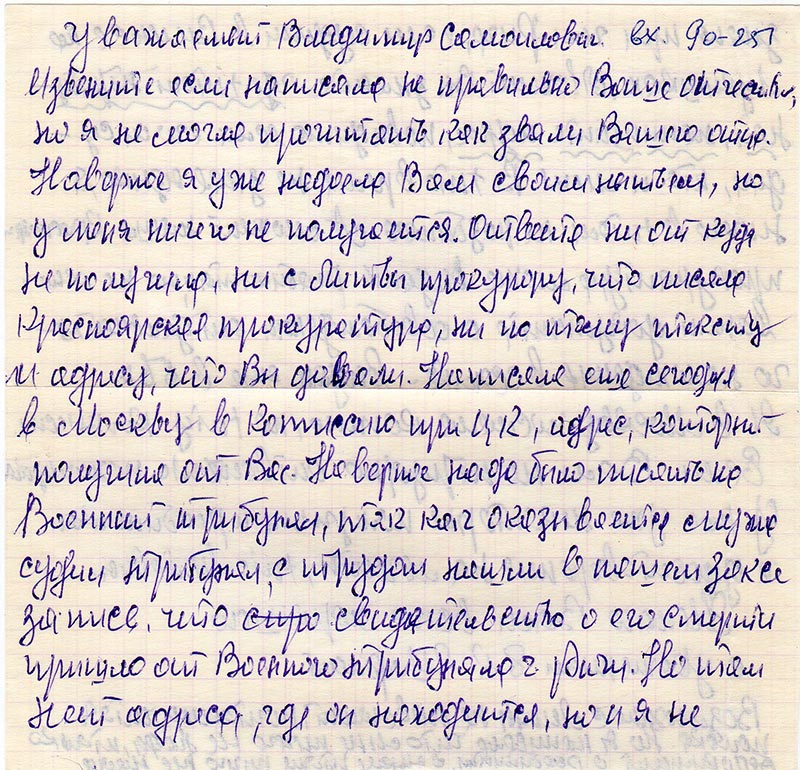 Уважаемый Владимир Самоилович. вх. 90-251
Извените если написала не правильно Ваше отчество,
но я не могла прочитать как звали Вашего отца.
Наверное я уже надоела Вам своим нытьем, но
у меня ничего не получается. Ответа ни от куда
не получила, ни с Литвы прокурору, что писала
Красноярская прокуратура, ни по тому тексту
и адресу, что Вы давали. Написала еще сегодня
в Москву в Комиссию при ЦК, адрес, который
получила от Вас. Наверное надо было писать на
Военный трибунал, так как оказывается мужа
судил трибунал, с трудом нашли в нашем Загсе
запись, что свидетельство о его смерти
пришло от Военного трибунала г. Риги. Но там
нет адреса, где он находится, но и я не